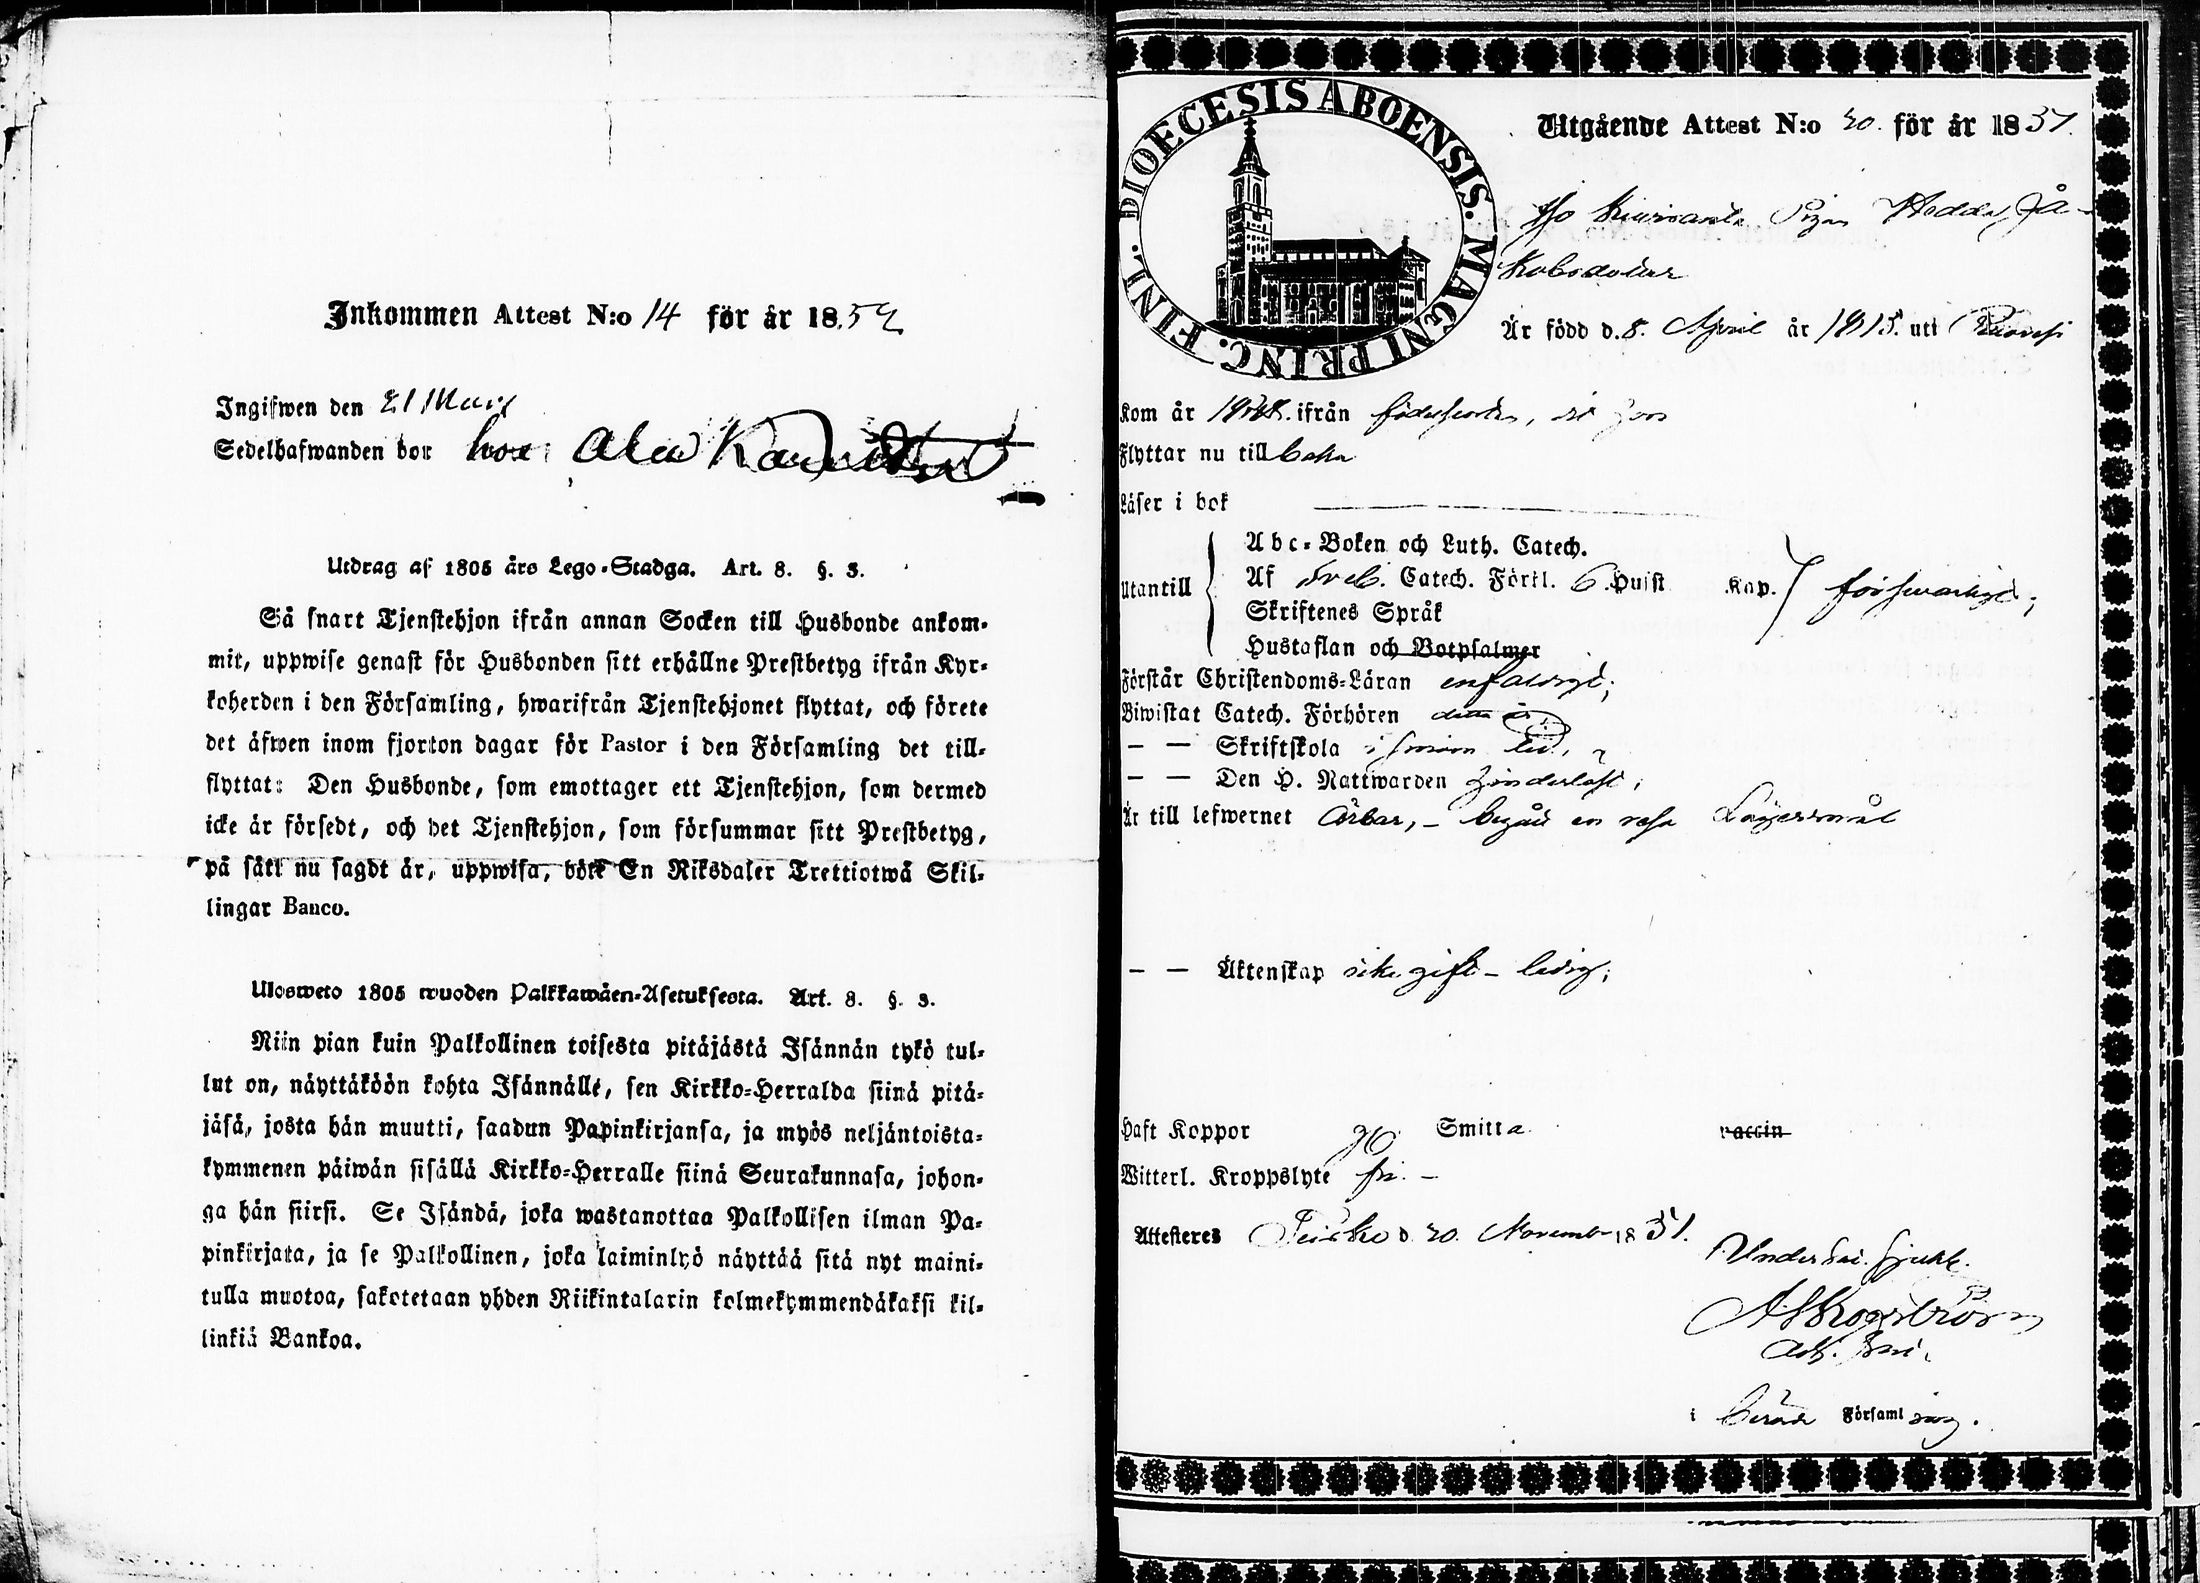 Inkommen Attest N:o 14 för år 1852
Ingifwen den 21 Mars
Sedelhafwanden bor hos
Utdrag af 1805 års Lego-Stadga. Art. 8. §. 3.
Så snart Tjenstehjon ifrån annan Socken till Husbonde ankom-
mit, uppwise genast för Husbonden sitt erhållne Prestbetyg ifrån Kyr-
koherden i den Församling, hwarifrån Tjenstehjonet flyttat, och förete
det äfwen inom fjorton dagar för Pastor i den Församling det till-
flyttat: Den Husbonde, som emottager ett Tjenstehjon, som dermed
icke är försedt, och det Tjenstehjon, som försummar sitt Prestbetyg,
på sätt nu sagdt är, uppwisa, böte En Riksdaler Trettiotwå Skil-
lingar Banco.
Ulosweto 1805 wuoden Palkkawäen-Asetuksesta. Art. 8. §. 3.
Niin pian kuin Palkollinen toisesta pitäjästä Isännän tykö tul-
lut on, näyttäköön kohta Isännälle, sen Kirkko-Herralda siinä pitä-
jäsä, josta hän muutti, saadun Papinkirjansa, ja myös neljäntoista-
kymmenen päiwän sisällä Kirkko-Herralle siinä Seurakunnasa, johon-
ga hän siirsi. Se Isändä, joka wastanottaa Palkollisen ilman Pa-
pinkirjata, ja se Palkollinen, joka laiminlyö näyttää sitä nyt maini-
tulla muotoa, sakotetaan yhden Riikintalarin kolmekymmendäkaksi kil-
linkiä Bankoa.
DIOECESIS ABOENSIS. MAGNI PRINC. FINL.
Utgående Attest N:o 20. för år 1851.
Pigan Hedda Ja-
kobsdotter
Är född d. 8. April år 1815. uti
Kom år ifrån födelseorten,
Flyttar nu tillbaka
Läser i bok
Utantill
Abc-Boken och Luth. Catech.
Af Sveb. Catech. Förkl. 6. Hufst Kap. försvarligt;
Skriftenes Språk
Hustaflan och Botpsalmer
Förstår Christendoms-Läran enfaldigt;
Biwistat Catech. Förhören
— — Skriftskola i sinom tid,
— — Den H. Nattwarden hinderlöst;
Är till lefwernet ärbar, – begått en resa Lägersmål
— — Äktenskap icke gift – ledig;
Haft Koppor Smitta vaccin
Witterl. Kroppslyte fri. –
Attesteres d. 20. November 1851.
A Skogström
i Församling.